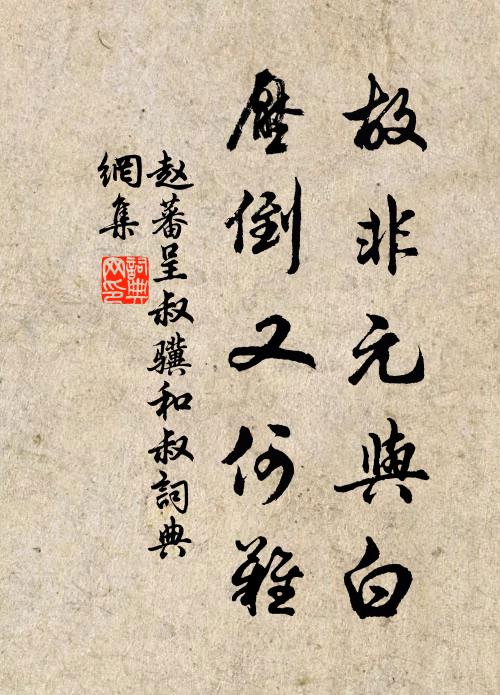 故非元與白
壓倒又何難
赵蕃呈叔骥和叔詞典
網集
詞典
网印